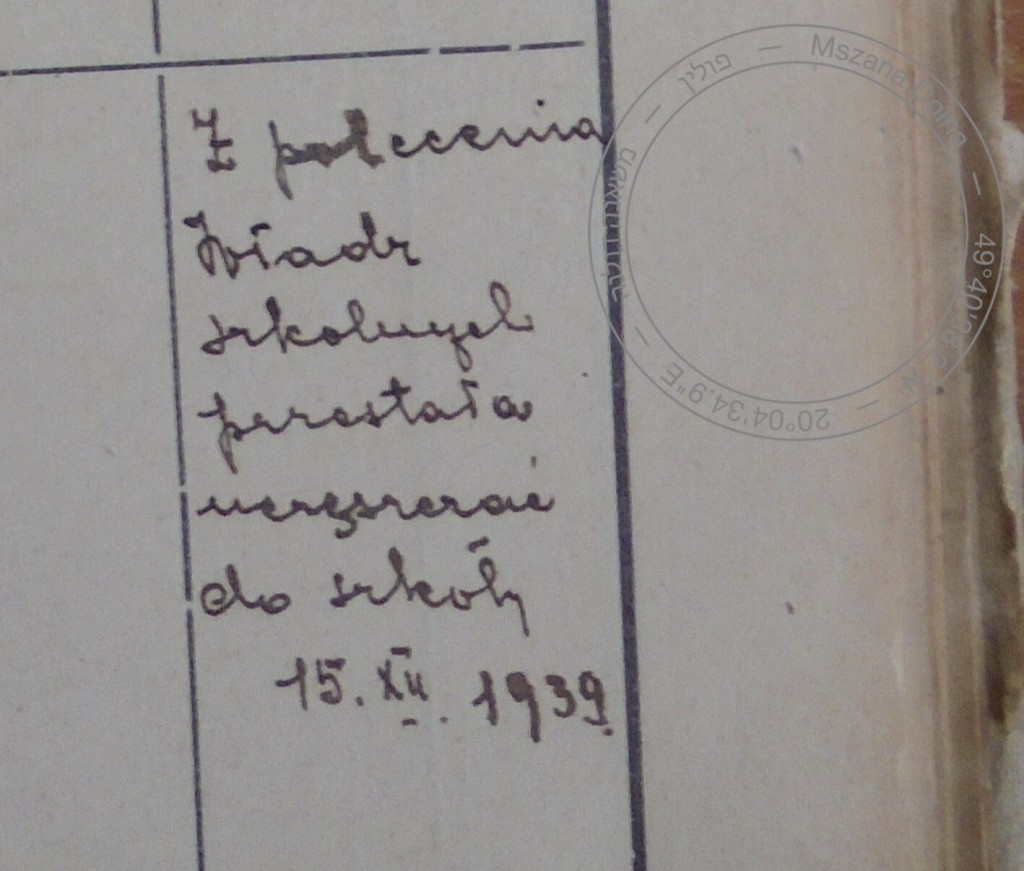 Z polecenia
Władz
szkolnych
przestała
uczęszczać
do szkoły
15. XII. 1939.
פולין — Mszana Dolna — 49°40'26.2"N — 20°04'34.9"E —